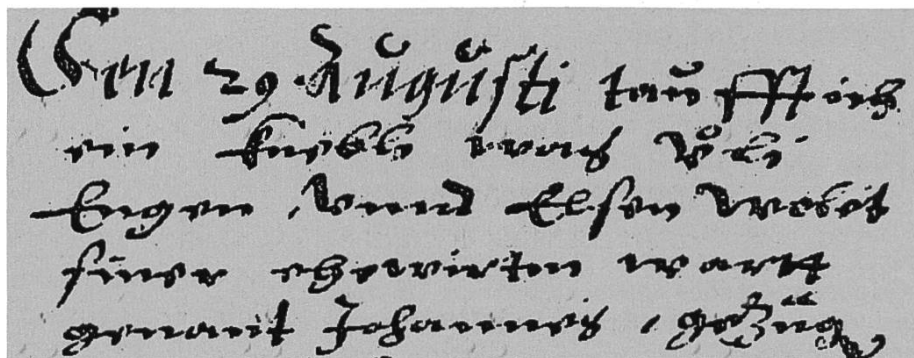 Den 29. Augusti taufft ich
ein knebli was Uli
Engen, vnnd Elsen
siner ehewirten wartt
genant Johannes, gezüg